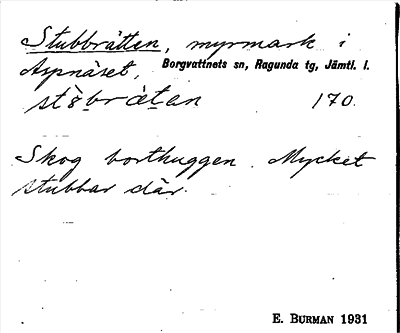 Stubbråttan, myrmark i
Aspnäset, Borgvattnets sn, Ragunda tg, Jämtl. l.
170.
Skog borthuggen. Mycket
stubbar där.
E. BURMAN 1931